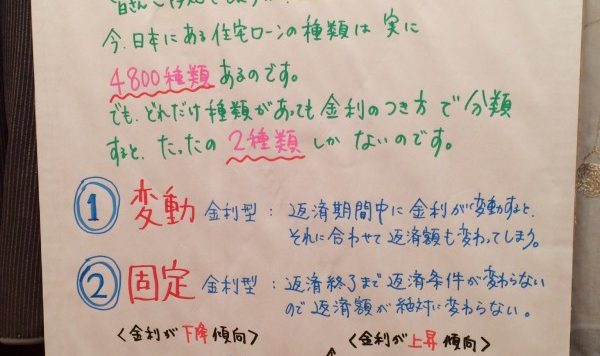 今、日本にある住宅ローンの種類は実に
4800種類あるのです。
でも、どれだけ種類があっても金利のつき方で分類
すると、たったの2種類しかないのです。
① 変動金利型：返済期間中に金利が変動すると、
それに合わせて返済額も変わってしまう。
② 固定金利型：返済終了まで返済条件が変わらない
ので返済額が絶対に変わらない。
<金利が下降傾向> <金利が上昇傾向>